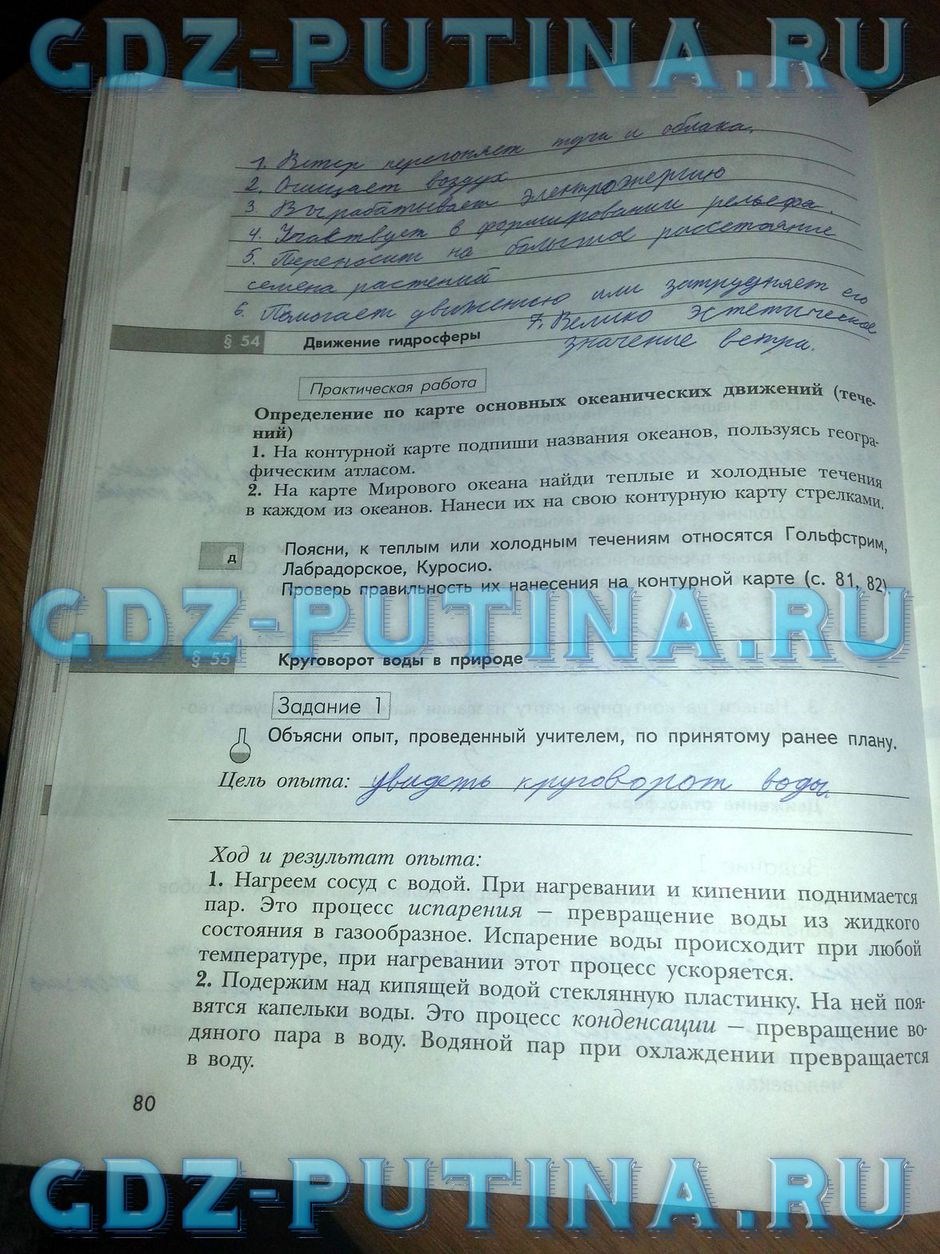 GDZ-PUTINA.RU
1. Ветер перегоняет тучи и облака.
2. Очищает воздух
3. Вырабатывает электроэнергию
4. Участвует в формировании рельефа.
5. Переносит на большое расстояние
семена растений
6. Помогает движению или затрудняет его
7. Велико эстетическое
значение ветра.
§ 54 Движение гидросферы
Практическая работа
Определение по карте основных океанических движений (тече-
ний)
1. На контурной карте подпиши названия океанов, пользуясь геогра-
фическим атласом.
2. На карте Мирового океана найди теплые и холодные течения
в каждом из океанов. Нанеси их на свою контурную карту стрелками.
д
Поясни, к теплым или холодным течениям относятся Гольфстрим,
Лабрадорское, Куросио.
Проверь правильность их нанесения на контурной карте (с. 81, 82).
GDZ-PUTINA.RU
§ 55 Круговорот воды в природе
Задание 1
Объясни опыт, проведенный учителем, по принятому ранее плану.
Цель опыта: увидеть круговорот воды
Ход и результат опыта:
1. Нагреем сосуд с водой. При нагревании и кипении поднимается
пар. Это процесс испарения — превращение воды из жидкого
состояния в газообразное. Испарение воды происходит при любой
температуре, при нагревании этот процесс ускоряется.
2. Подержим над кипящей водой стеклянную пластинку. На ней поя-
вятся капельки воды. Это процесс конденсации — превращение во-
дяного пара в воду. Водяной пар при охлаждении превращается
в воду.
80
GDZ-PUTINA.RU